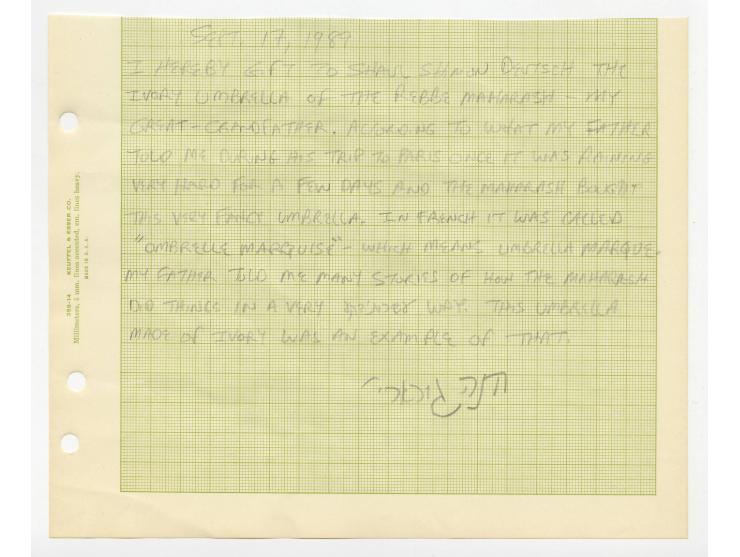 SEPT. 17, 1989
I HEREBY GIFT TO SHAUL SHIMON DEUTSCH THE
IVORY UMBRELLA OF THE REBBE MAHARASH - MY
GREAT-GRANDFATHER. ACCORDING TO WHAT MY FATHER
TOLD ME DURING HIS TRIP TO PARIS ONCE IT WAS RAINING
VERY HARD FOR A FEW DAYS AND THE MAHARASH BOUGHT
THIS VERY FANCY UMBRELLA. IN FRENCH IT WAS CALLED
"OMBRELLE MARQUISE" - WHICH MEANS UMBRELLA MARQUE.
MY FATHER TOLD ME MANY STORIES OF HOW THE MAHARASH
DID THINGS IN A VERY WAY. THIS UMBRELLA
MADE OF IVORY WAS AN EXAMPLE OF THAT.
חנה גוראריי
359-14 KEUFFEL & ESSER CO.
Millimeters, 5 mm. lines accented, cm. lines heavy.
MADE IN U.S.A.